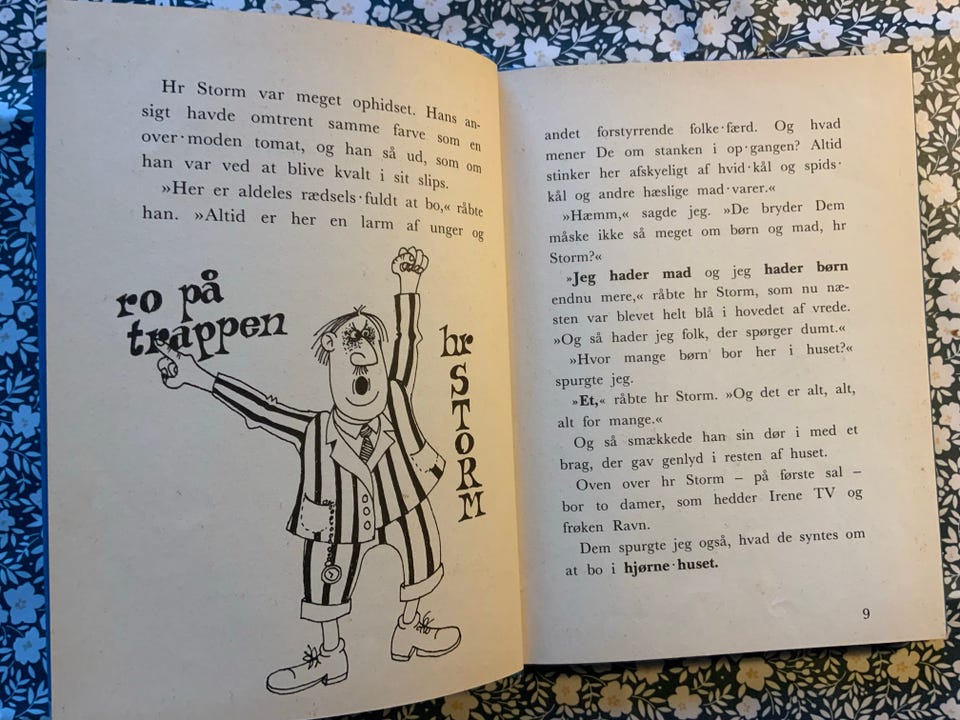 Hr Storm var meget ophidset. Hans an-
sigt havde omtrent samme farve som en
over·moden tomat, og han så ud, som om
han var ved at blive kvalt i sit slips.
»Her er aldeles rædsels·fuldt at bo,« råbte
han. »Altid er her en larm af unger og
ro på
trappen
hr
STORM
andet forstyrrende folke·færd. Og hvad
mener De om stanken i op·gangen? Altid
stinker her afskyeligt af hvid·kål og spids·
kål og andre hæslige mad·varer.«
»Hæmm,« sagde jeg. »De bryder Dem
måske ikke så meget om børn og mad, hr
Storm?«
»Jeg hader mad og jeg hader børn
endnu mere,« råbte hr Storm, som nu næ-
sten var blevet helt blå i hovedet af vrede.
»Og så hader jeg folk, der spørger dumt.«
»Hvor mange børn bor her i huset?«
spurgte jeg.
»Et,« råbte hr Storm. »Og det er alt, alt,
alt for mange.«
Og så smækkede han sin dør i med et
brag, der gav genlyd i resten af huset.
Oven over hr Storm – på første sal –
bor to damer, som hedder Irene TV og
frøken Ravn.
Dem spurgte jeg også, hvad de syntes om
at bo i hjørne·huset.
9